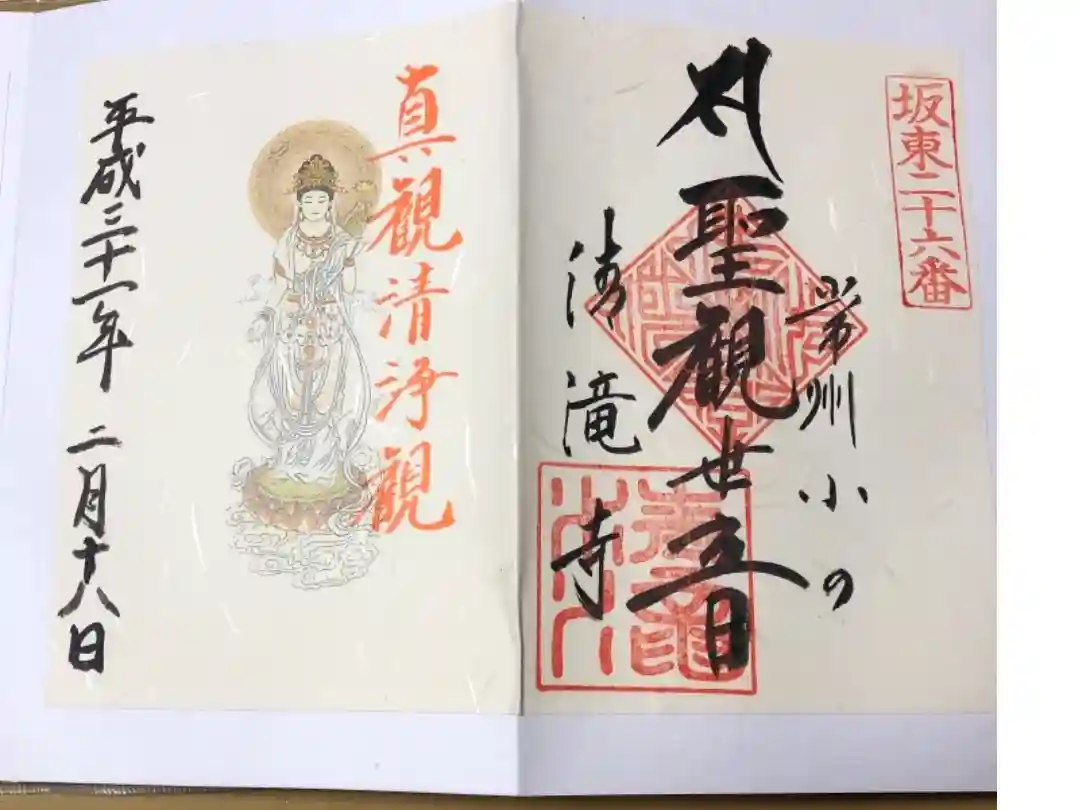 坂東二十六番
常州小の
聖観世音
清滝寺
真観清浄観
平成三十一年 二月十八日